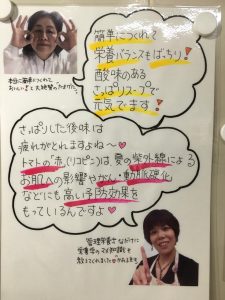 簡単につくれて
栄養バランスもばっちり!
酸味のある
さっぱりスープで
元気でます!
本当に簡単につくれて
おいしい!と大絶賛のたまけん
さっぱりした後味は
疲れがとれますよね〜♥
トマトの「赤(リコピン)」は夏の紫外線による
お肌への影響やがん・動脈硬化
などにも高い予防効果を
もっているんですよ♥
管理栄養士ならだけに
栄養学のマメ知識も
教えてくれました♥